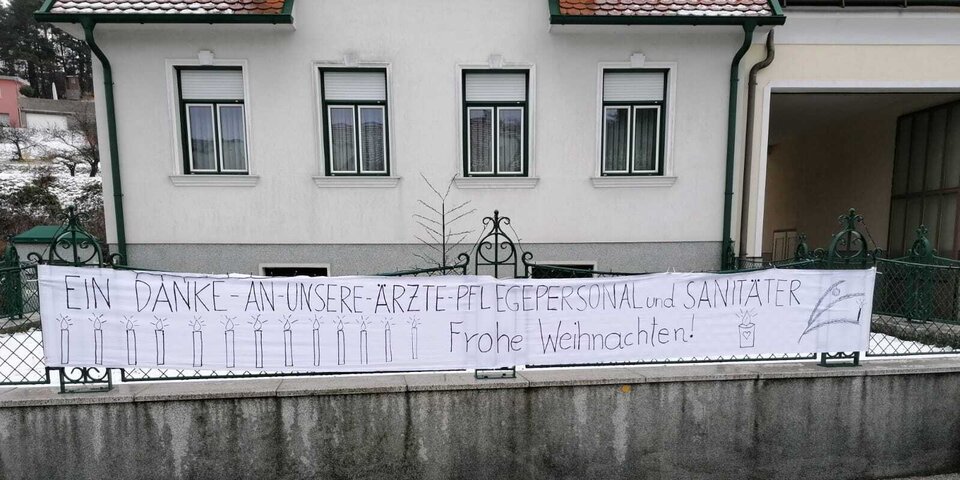 EIN DANKE-AN-UNSERE-ÄRZTE-PFLEGEPERSONAL und SANITÄTER
Frohe Weihnachten!